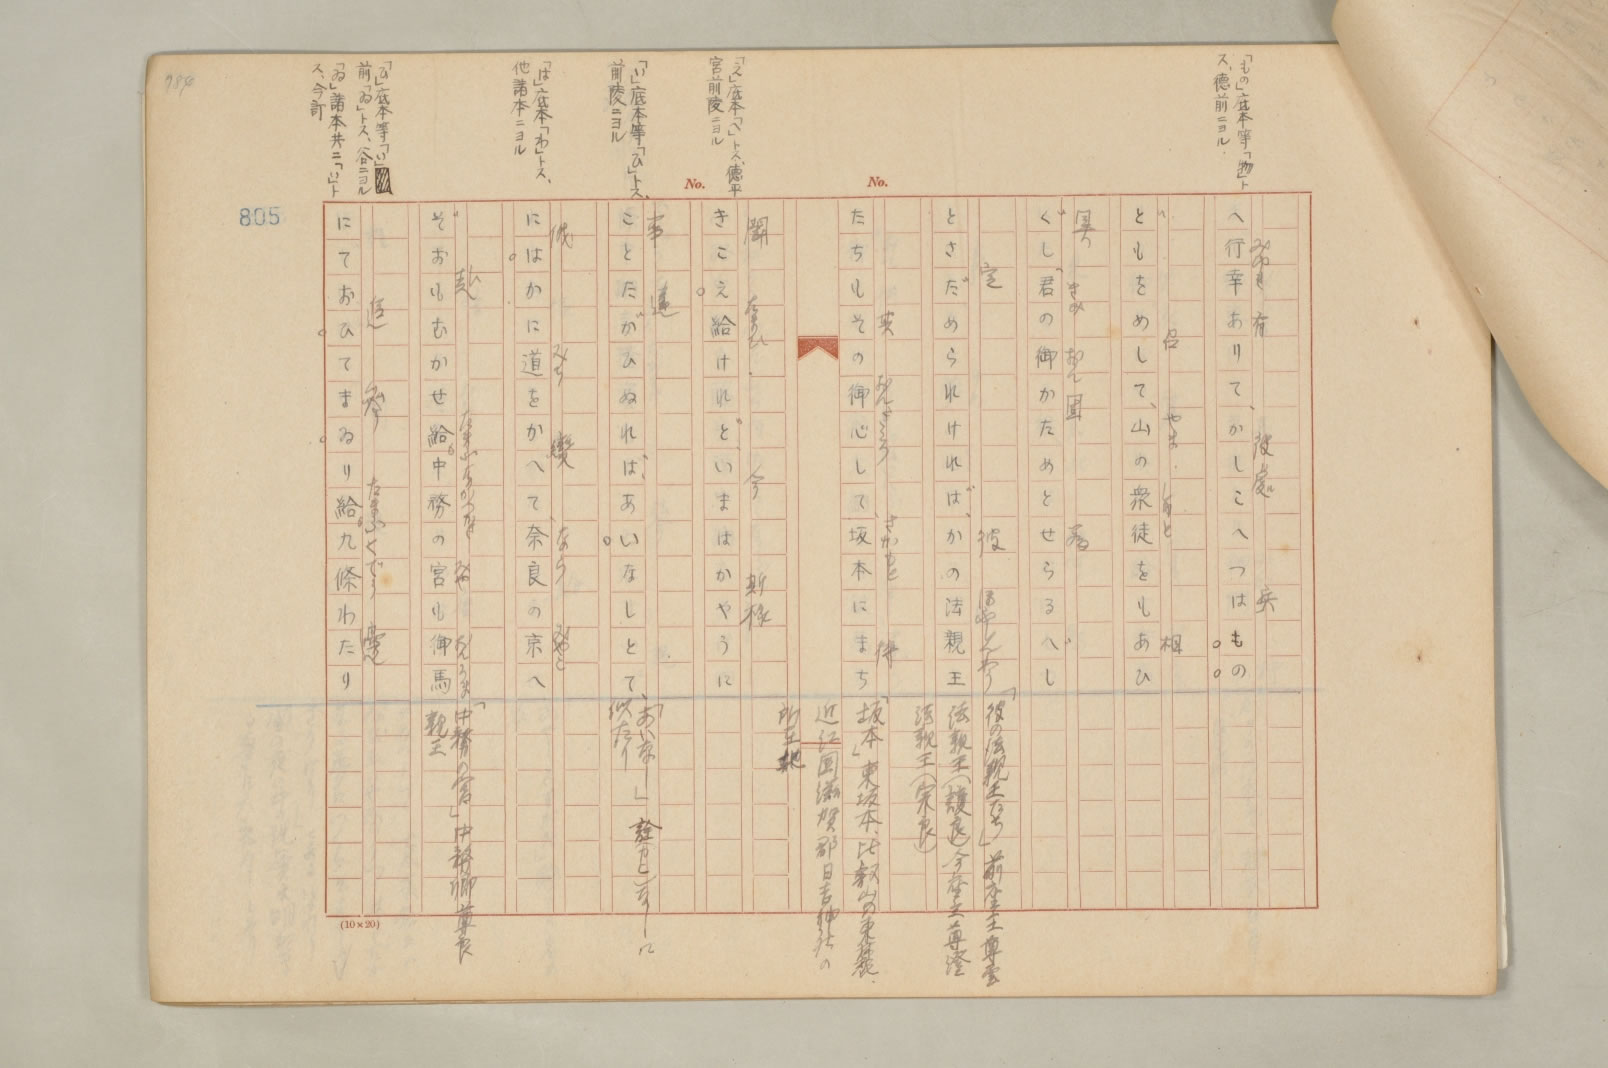 「もの」底本等「物」ト
ス、徳前ニヨル
「え」底本「へ」トス、徳平
宮前陵ニヨル
「い」底本等「ひ」トス、
前陵ニヨル
「は」底本「わ」トス、
他諸本ニヨル
「ひ」底本等「い」
前「ゐ」トス、谷ニヨル
「ゐ」諸本共ニ「い」ト
ス、今訂
No.
No.
805
みゆき 有 彼處 兵
へ行幸ありて、かしこへつはもの
召 やま しゆと 相
どもをめして、山の衆徒をもあひ
具 きみ おん 固 為
ぐし君の御かためとせらるべし
定 彼 ほふしんわう
とさだめられければ、かの法親王
其 おんこころ さかもと 待
たちもその御心して、坂本にまち
聞 たまひ 今 斯様
きこえ給けれど、いまはかやうに
事 違
ことたがひぬれば、あいなしとて、
俄 みち 變 なら みやこ
にはかに道をかへて、奈良の京へ
赴 たまふなかつかさ みや おんうま
ぞおもむかせ給。中務の宮も御馬
追 參 たまふくでう 邊
にておひてまゐり給。九條わたり
「彼の法親王たち」前座主尊雲
法親王(護良)今座主尊澄
法親王(宗良)
「坂本」東坂本、比叡山の東麓、
近江国滋賀郡日吉神社の
所在地
「あいなし」
似たり
「中務の宮」中務卿尊良
親王
(10×20)